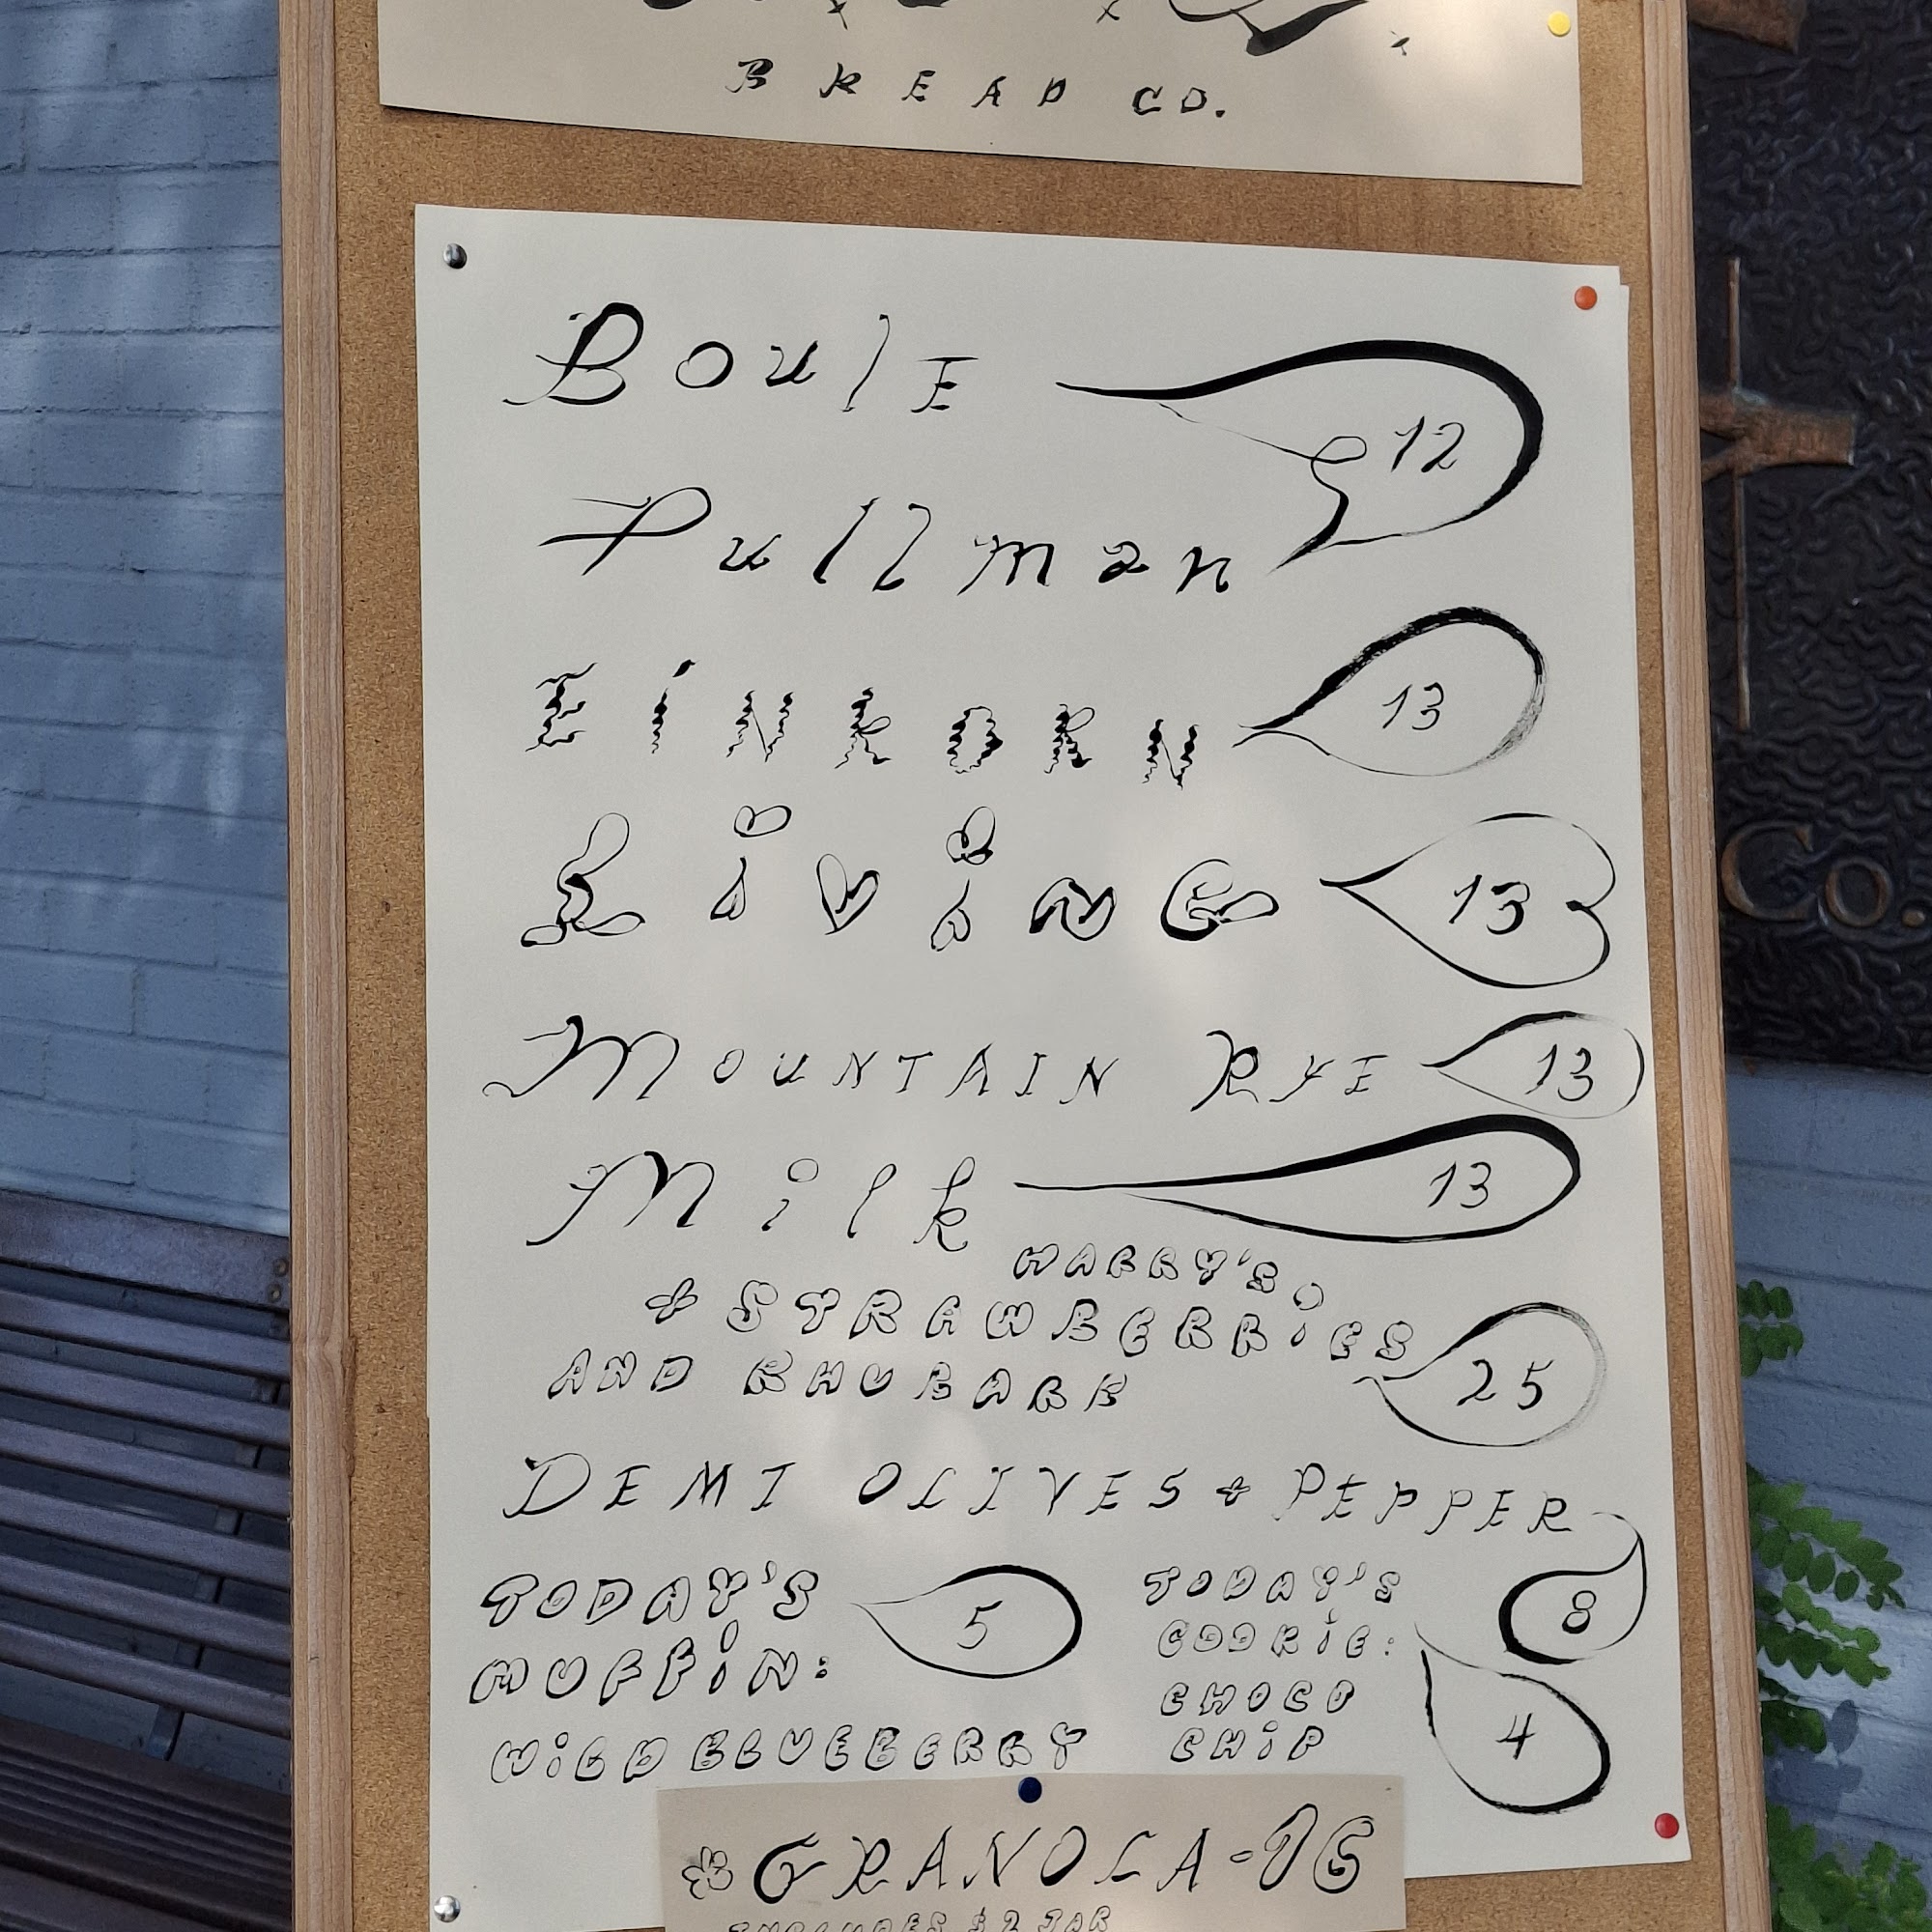 BREAD CO.
Boule
12
Pullman
EiNKORN 13
LiViNG 13
MOUNTAIN RYE 13
Milk 13
HARRY'S
+ STRAWBERRiES
AND RHUBARB 25
DEMI OLIVES + PEPPER
8
TODAY'S
MUFFiN: 5
WiLD BLUEBERRY
TODAY'S
COOKiE:
CHOCO
CHiP 4
GRANOLA-16
INCLUDES $2 JAR
Co.